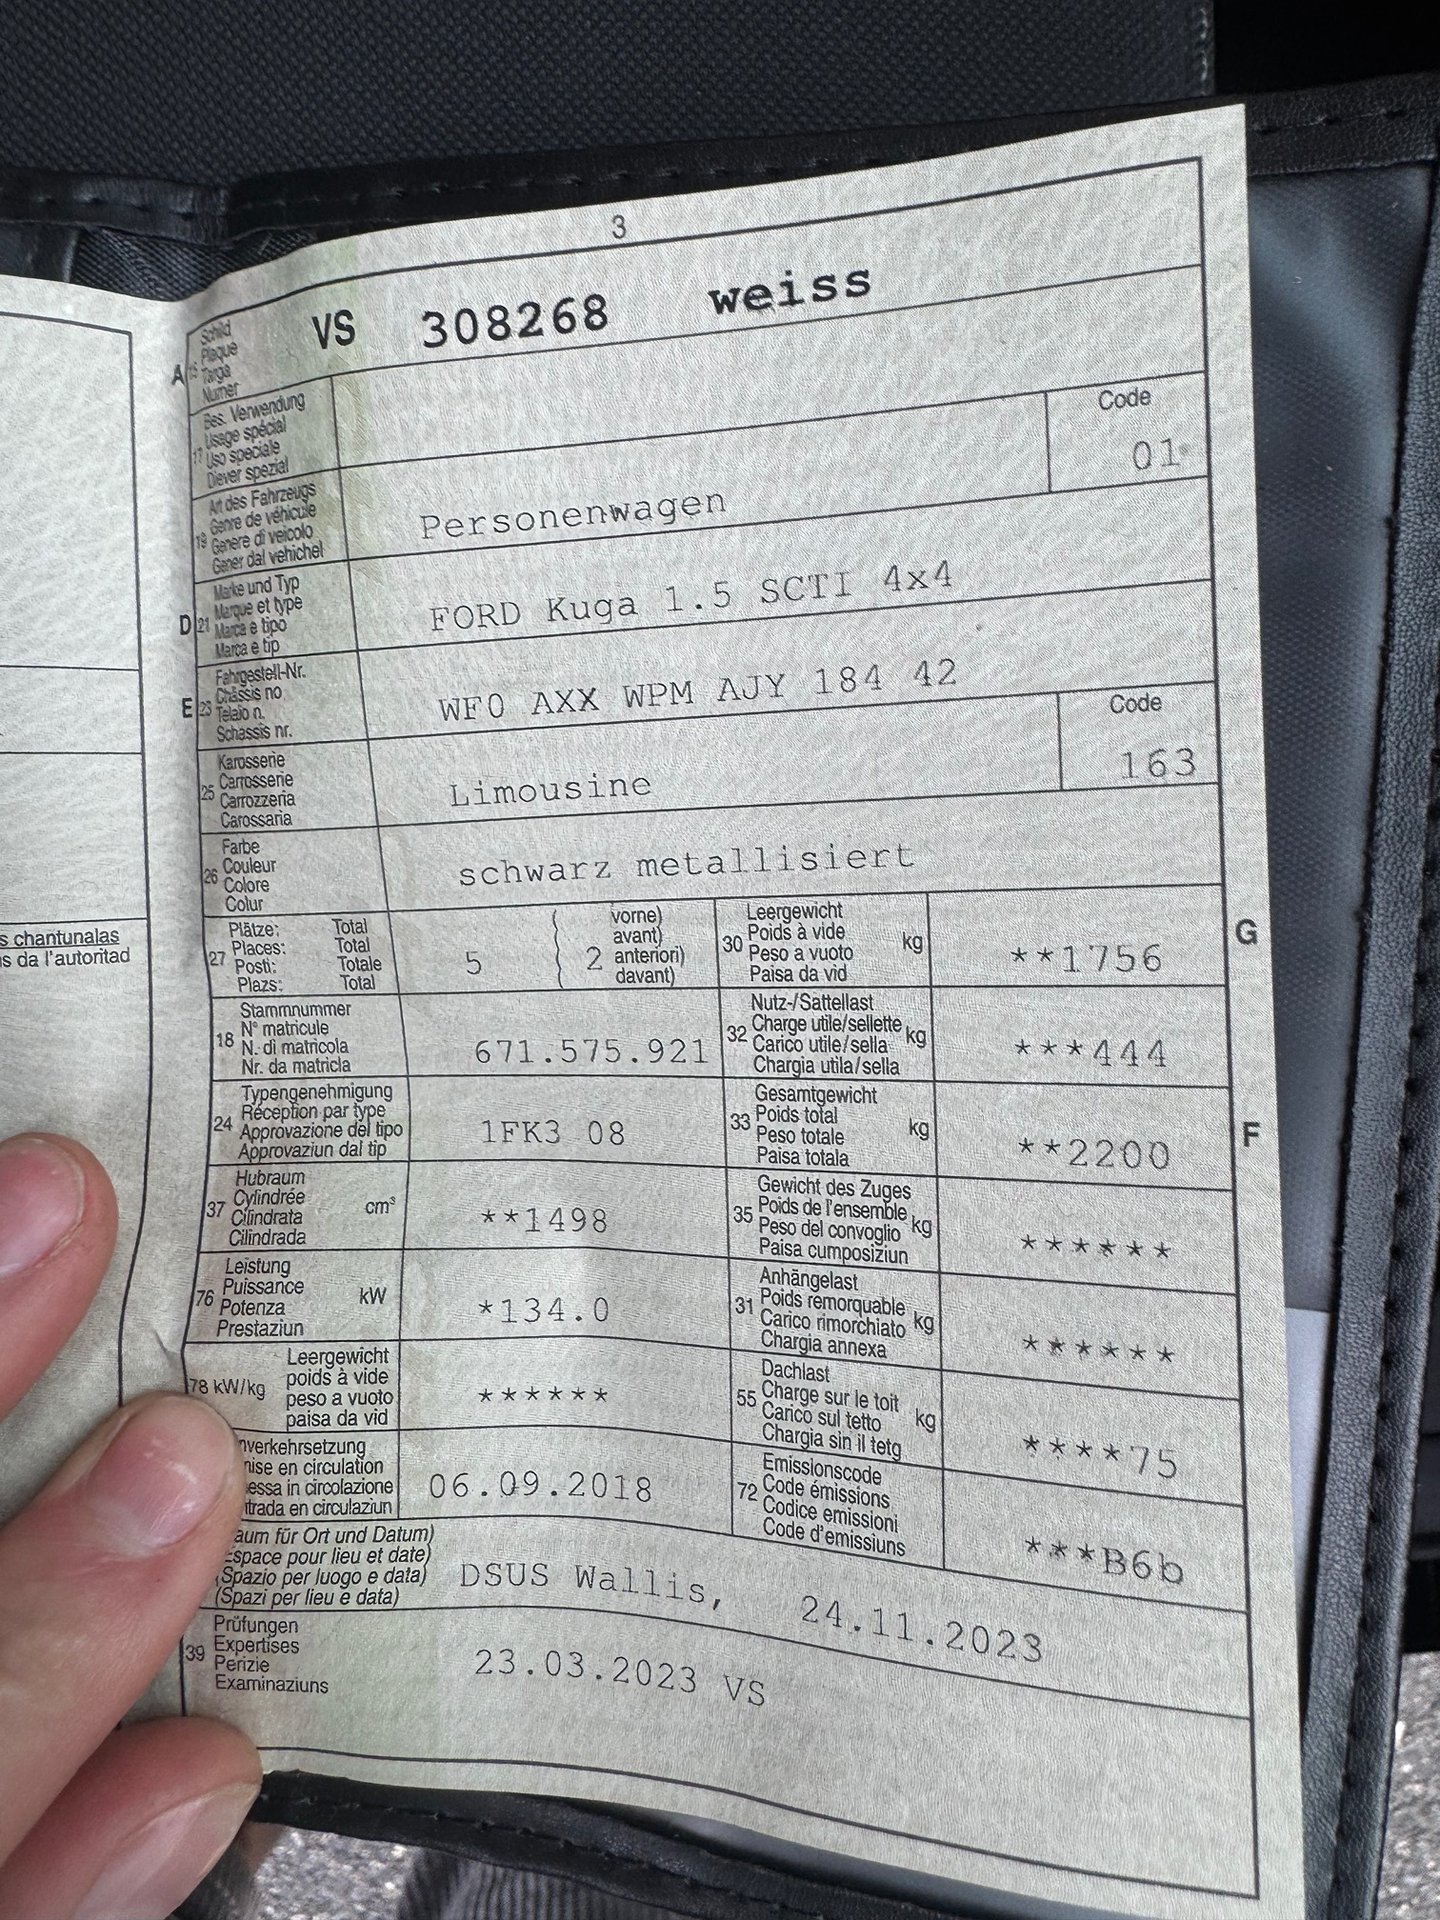 3
A 15 Schild
Plaque
Targa
Numer
VS 308268 weiss
17 Bes. Verwendung
Usage spécial
Uso speciale
Diever spezial
19 Art des Fahrzeugs
Genre de véhicule
Genere di veicolo
Gener dal vehichel
Personenwagen
Code
01
D 21 Marke und Typ
Marque et type
Marca e tipo
Marca e tip
FORD Kuga 1.5 SCTI 4x4
E 23 Fahrgestell-Nr.
Châssis no
Telaio n.
Schassis nr.
WF0 AXX WPM AJY 184 42
25 Karosserie
Carrosserie
Carrozzeria
Carossaria
Limousine
Code
163
26 Farbe
Couleur
Colore
Colur
schwarz metallisiert
27 Plätze: Total
Places: Total
Posti: Totale
Plazs: Total
5
2
vorne)
avant)
anteriori)
davant)
30 Leergewicht
Poids à vide
Peso a vuoto
Paisa da vid
kg
**1756
G
18 Stammnummer
N° matricule
N. di matricola
Nr. da matricla
671.575.921
32 Nutz-/Sattellast
Charge utile/sellette
Carico utile/sella
Chargia utila/sella
kg
***444
24 Typengenehmigung
Réception par type
Approvazione del tipo
Approvaziun dal tip
1FK3 08
33 Gesamtgewicht
Poids total
Peso totale
Paisa totala
kg
**2200
F
37 Hubraum
Cylindrée
Cilindrata
Cilindrada
cm³
**1498
35 Gewicht des Zuges
Poids de l'ensemble
Peso del convoglio
Paisa cumposiziun
kg
******
76 Leistung
Puissance
Potenza
Prestaziun
kW
*134.0
31 Anhängelast
Poids remorquable
Carico rimorchiato
Chargia annexa
kg
******
78 kW/kg
Leergewicht
poids à vide
peso a vuoto
paisa da vid
******
55 Dachlast
Charge sur le toit
Carico sul tetto
Chargia sin il tetg
kg
****75
nverkehrsetzung
mise en circulation
essa in circolazione
trada en circulaziun
06.09.2018
72 Emissionscode
Code émissions
Codice emissioni
Code d'emissiuns
***B6b
aum für Ort und Datum)
Espace pour lieu et date)
(Spazio per luogo e data)
(Spazi per lieu e data)
DSUS Wallis, 24.11.2023
39 Prüfungen
Expertises
Perizie
Examinaziuns
23.03.2023 VS
s chantunalas
s da l'autoritad